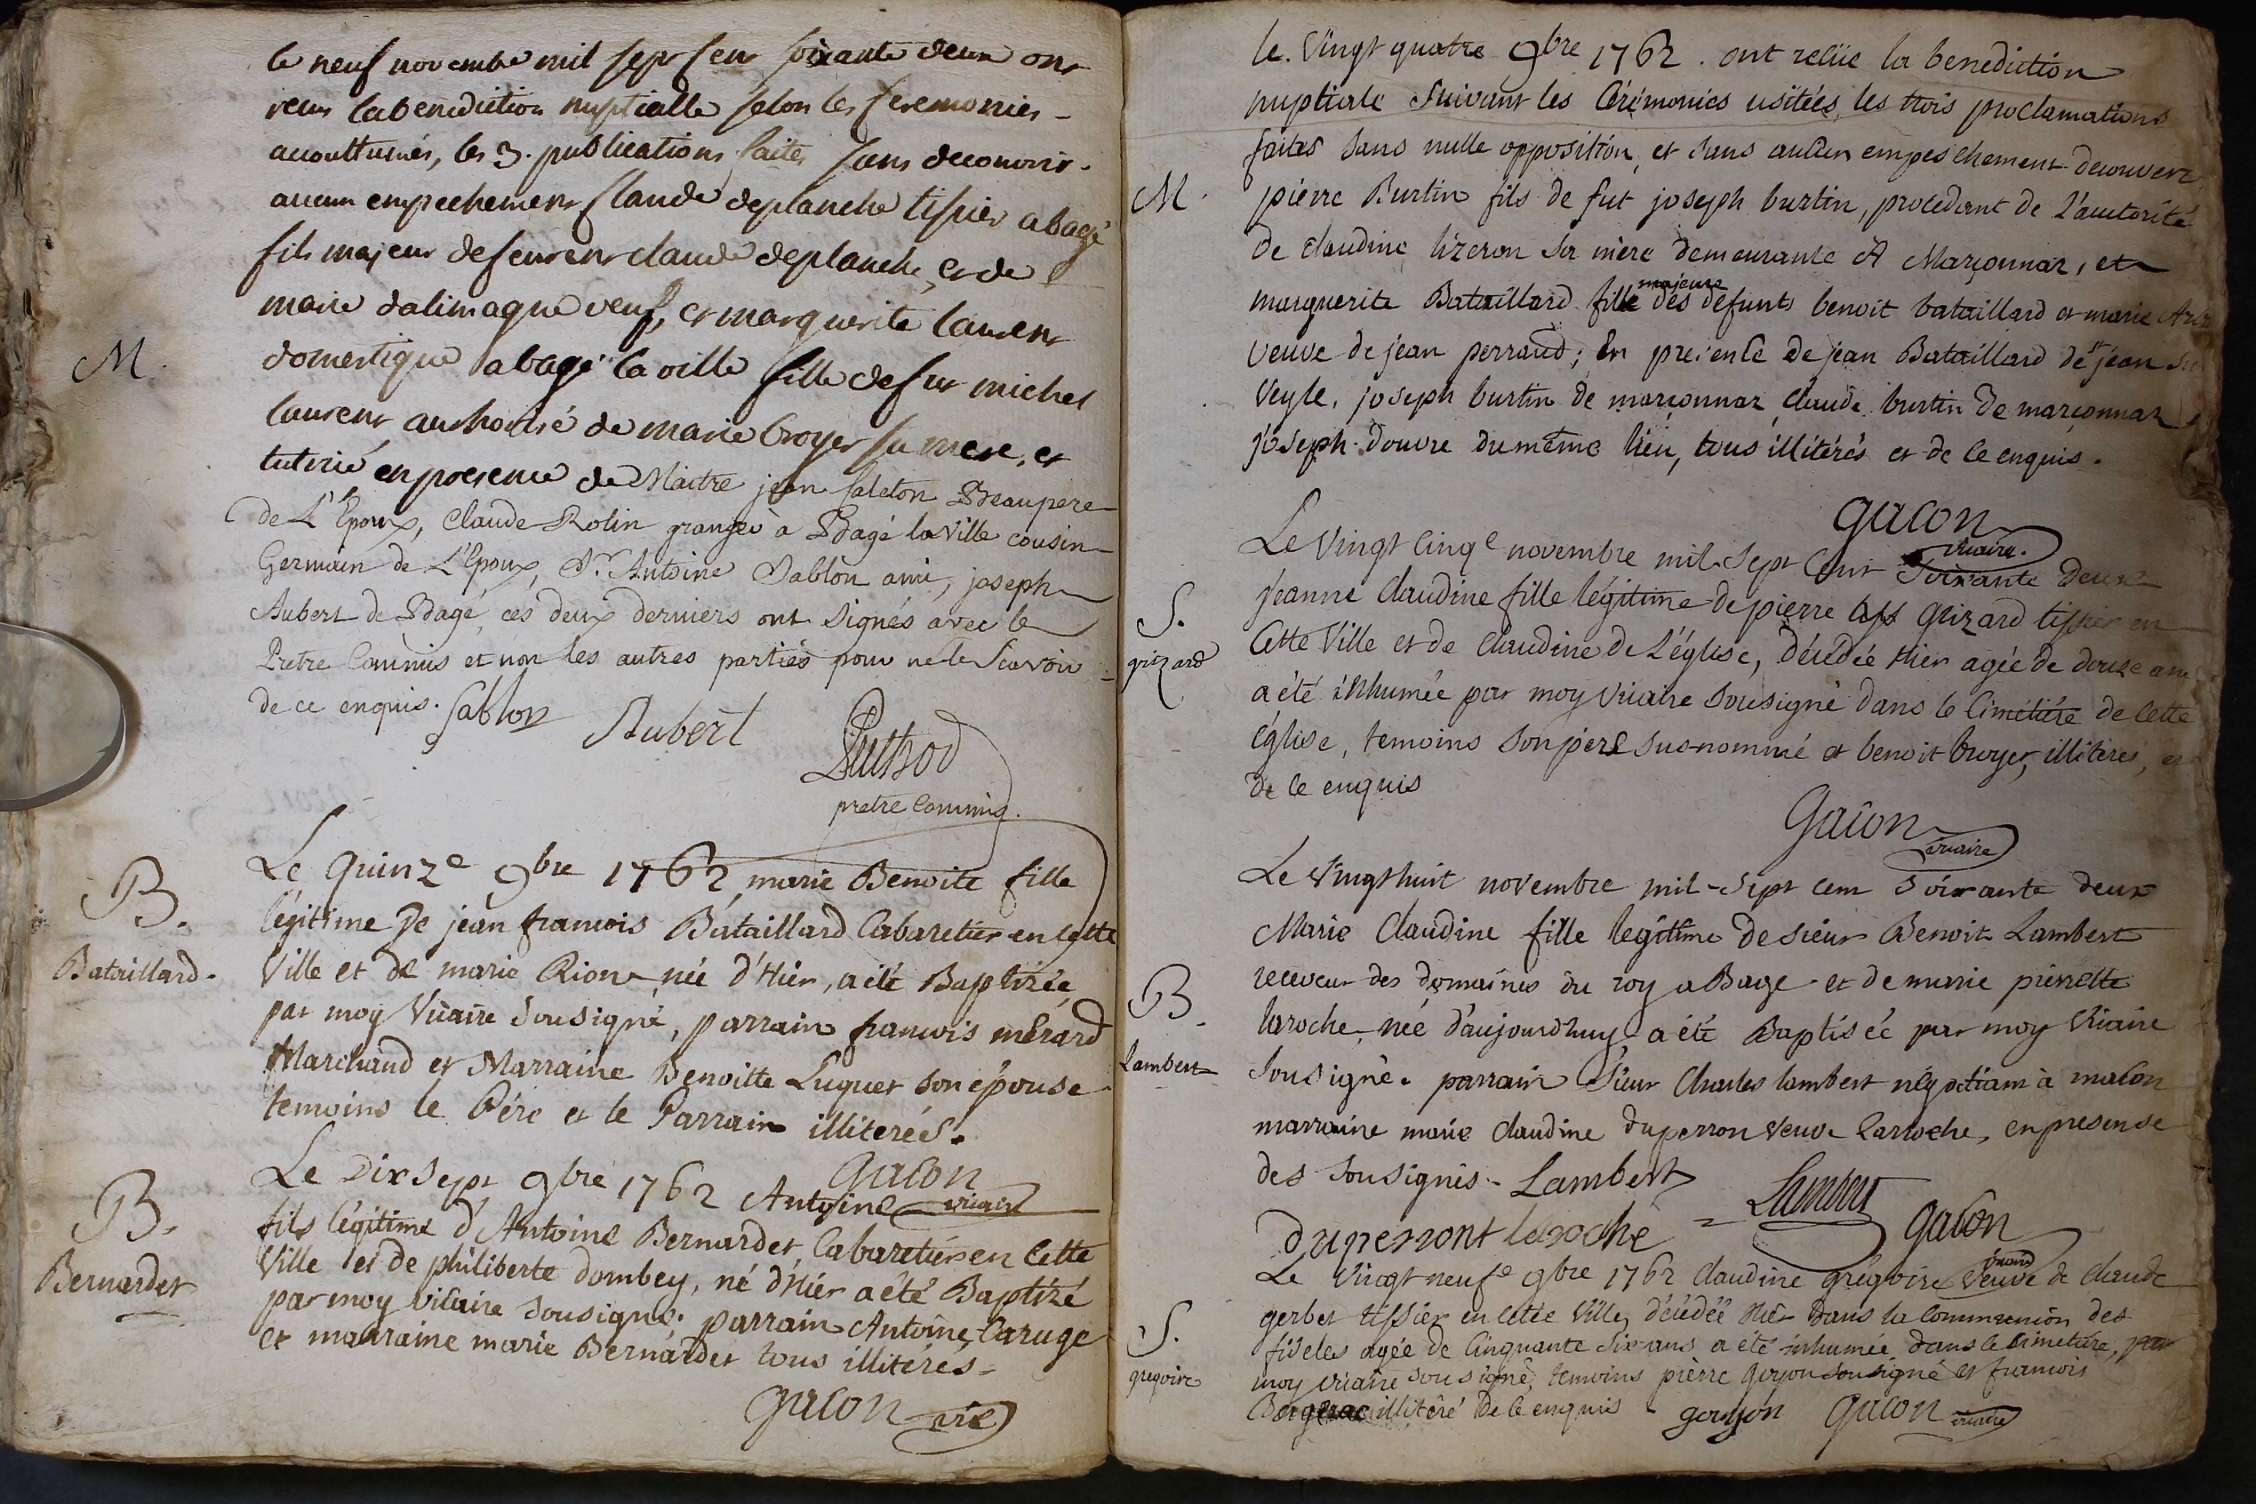 le neuf novembre mil sept sent soixante deux ont
receu la benediction nuptialle selon les seremonies
accouttumés, les 3. publications faites sans decouvrir
aucun empechement Claude deplanche tissier a bagé
fils majeur de feu claude deplanche, et de
marie dalimaque veuf, et marguerite laurent
M.
domestique a bagé la ville fille de fut michel
laurent authorisé de marie broyer sa mere, et
tutrice en presence de Maitre jean saleton Beaupere
de L'Epoux, Claude Rolin granger à Bagé la ville cousin
Germain de L'Epoux, Sr. Antoine Sablon ami, joseph
Aubert de Bagé, ces deux derniers ont signés avec le
Pretre Commis et non les autres parties pour ne le scavoir
de ce enquis. Sablon Aubert
Puthod
pretre Commis.
Le Quinze 9bre 1762 marie Benoite fille
B.
légitime de jean francois Bataillard Cabaretier en Cette
Bataillard.
Ville et de marie Rion née d'Hier, a été Baptizée
par moy Vicaire Sousigné, parrain francois mérard
Marchand et Marraine Benoitte Luquet son épouse
temoins le Pére et le Parrain illiterés.
Gacon
vicaire
Le Dix Sept 9bre 1762 Antoine
B.
fils légitime d'Antoine Bernardet Cabaretier en Cette
Bernardet
Ville et de philiberte dombey, né d'Hier a été Baptizé
par moy vicaire sousigné. parrain Antoine Caruge
et marraine marie Bernardet tous illitérés
Gacon vic
le Vingt quatre 9bre 1762. ont reçue la benediction
nuptiale suivant les Cérémonies usitées, les trois proclamations
faites sans nulle opposition, et sans aucun empeschement decouvert
M.
pierre Burtin fils de fut joseph burtin, procedant de l'autorité
de claudine lizeron sa mère demeurante A Marçonnaz, et
majeure
marguerite Bataillard fille des défunts benoit bataillard et marie
veuve de jean perraud; En presence de jean Bataillard de st jean
Veyle, joseph burtin de marçonnaz, claude burtin de marçonnaz
joseph Douvre du même lieu, tous illitérés et de ce enquis.
Gacon
vicaire.
Le Vingt Cinqe novembre mil Sept Cent Soixante Deux
S.
jeanne Claudine fille légitime de pierre grizard tissier en
grizard
Cette Ville et de Claudine de L'église, décédée Hier agée de douze ans
a été inhumée par moy vicaire sousigné dans le Cimetiére de Cette
Eglise, temoins son pere susnommé et benoit broyer, illitérés, et
de ce enquis
Gacon
vicaire
Le Vingt huit novembre mil Sept Cent Soixante deux
Marie Claudine fille legitime de sieur Benoit Lambert
receveur des domaines du roy a Bage et de marie pierrette
B.
laroche, née d'aujourdhuy a été Baptisée par moy Vicaire
Lambert
Sousigné. parrain Sieur Charles lambert négotiant à macon
marraine marie Claudine duperron Veuve Laroche, en presense
des sousignés. Lambert
Lambert
Duperront laroche Gacon
vicaire
Le Vingt neufe 9bre 1762 Claudine grégoire Veuve de Claude
gerbet tissier en Cette Ville, décédée Hier Dans la Communion des
S.
fideles agée de Cinquante Six ans a été inhumée dans le cimetiére, par
gregoire
moy vicaire sousigné, temoins pierre goyon sousigné et francois
Bergerac illitéré de ce enquis goyon Gacon vicaire